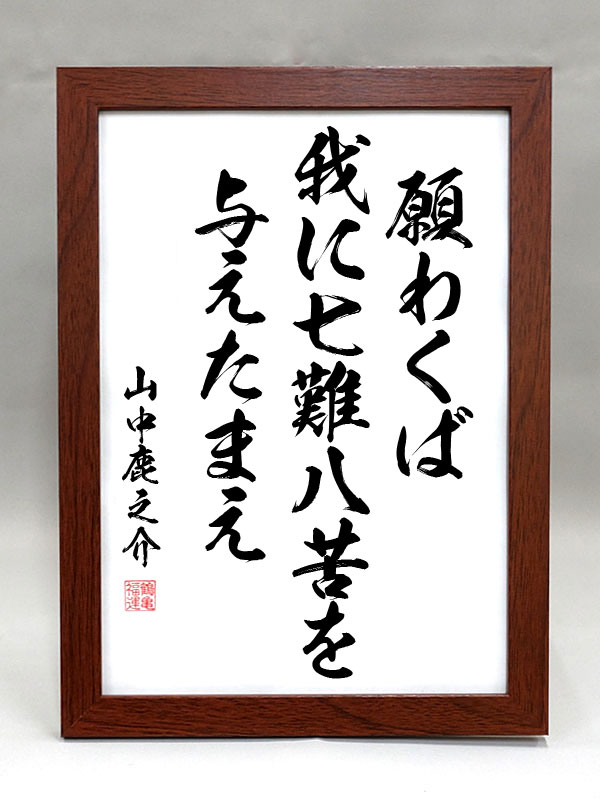 願わくば
我に七難八苦を
与えたまえ
山中鹿之介
鶴亀
福運